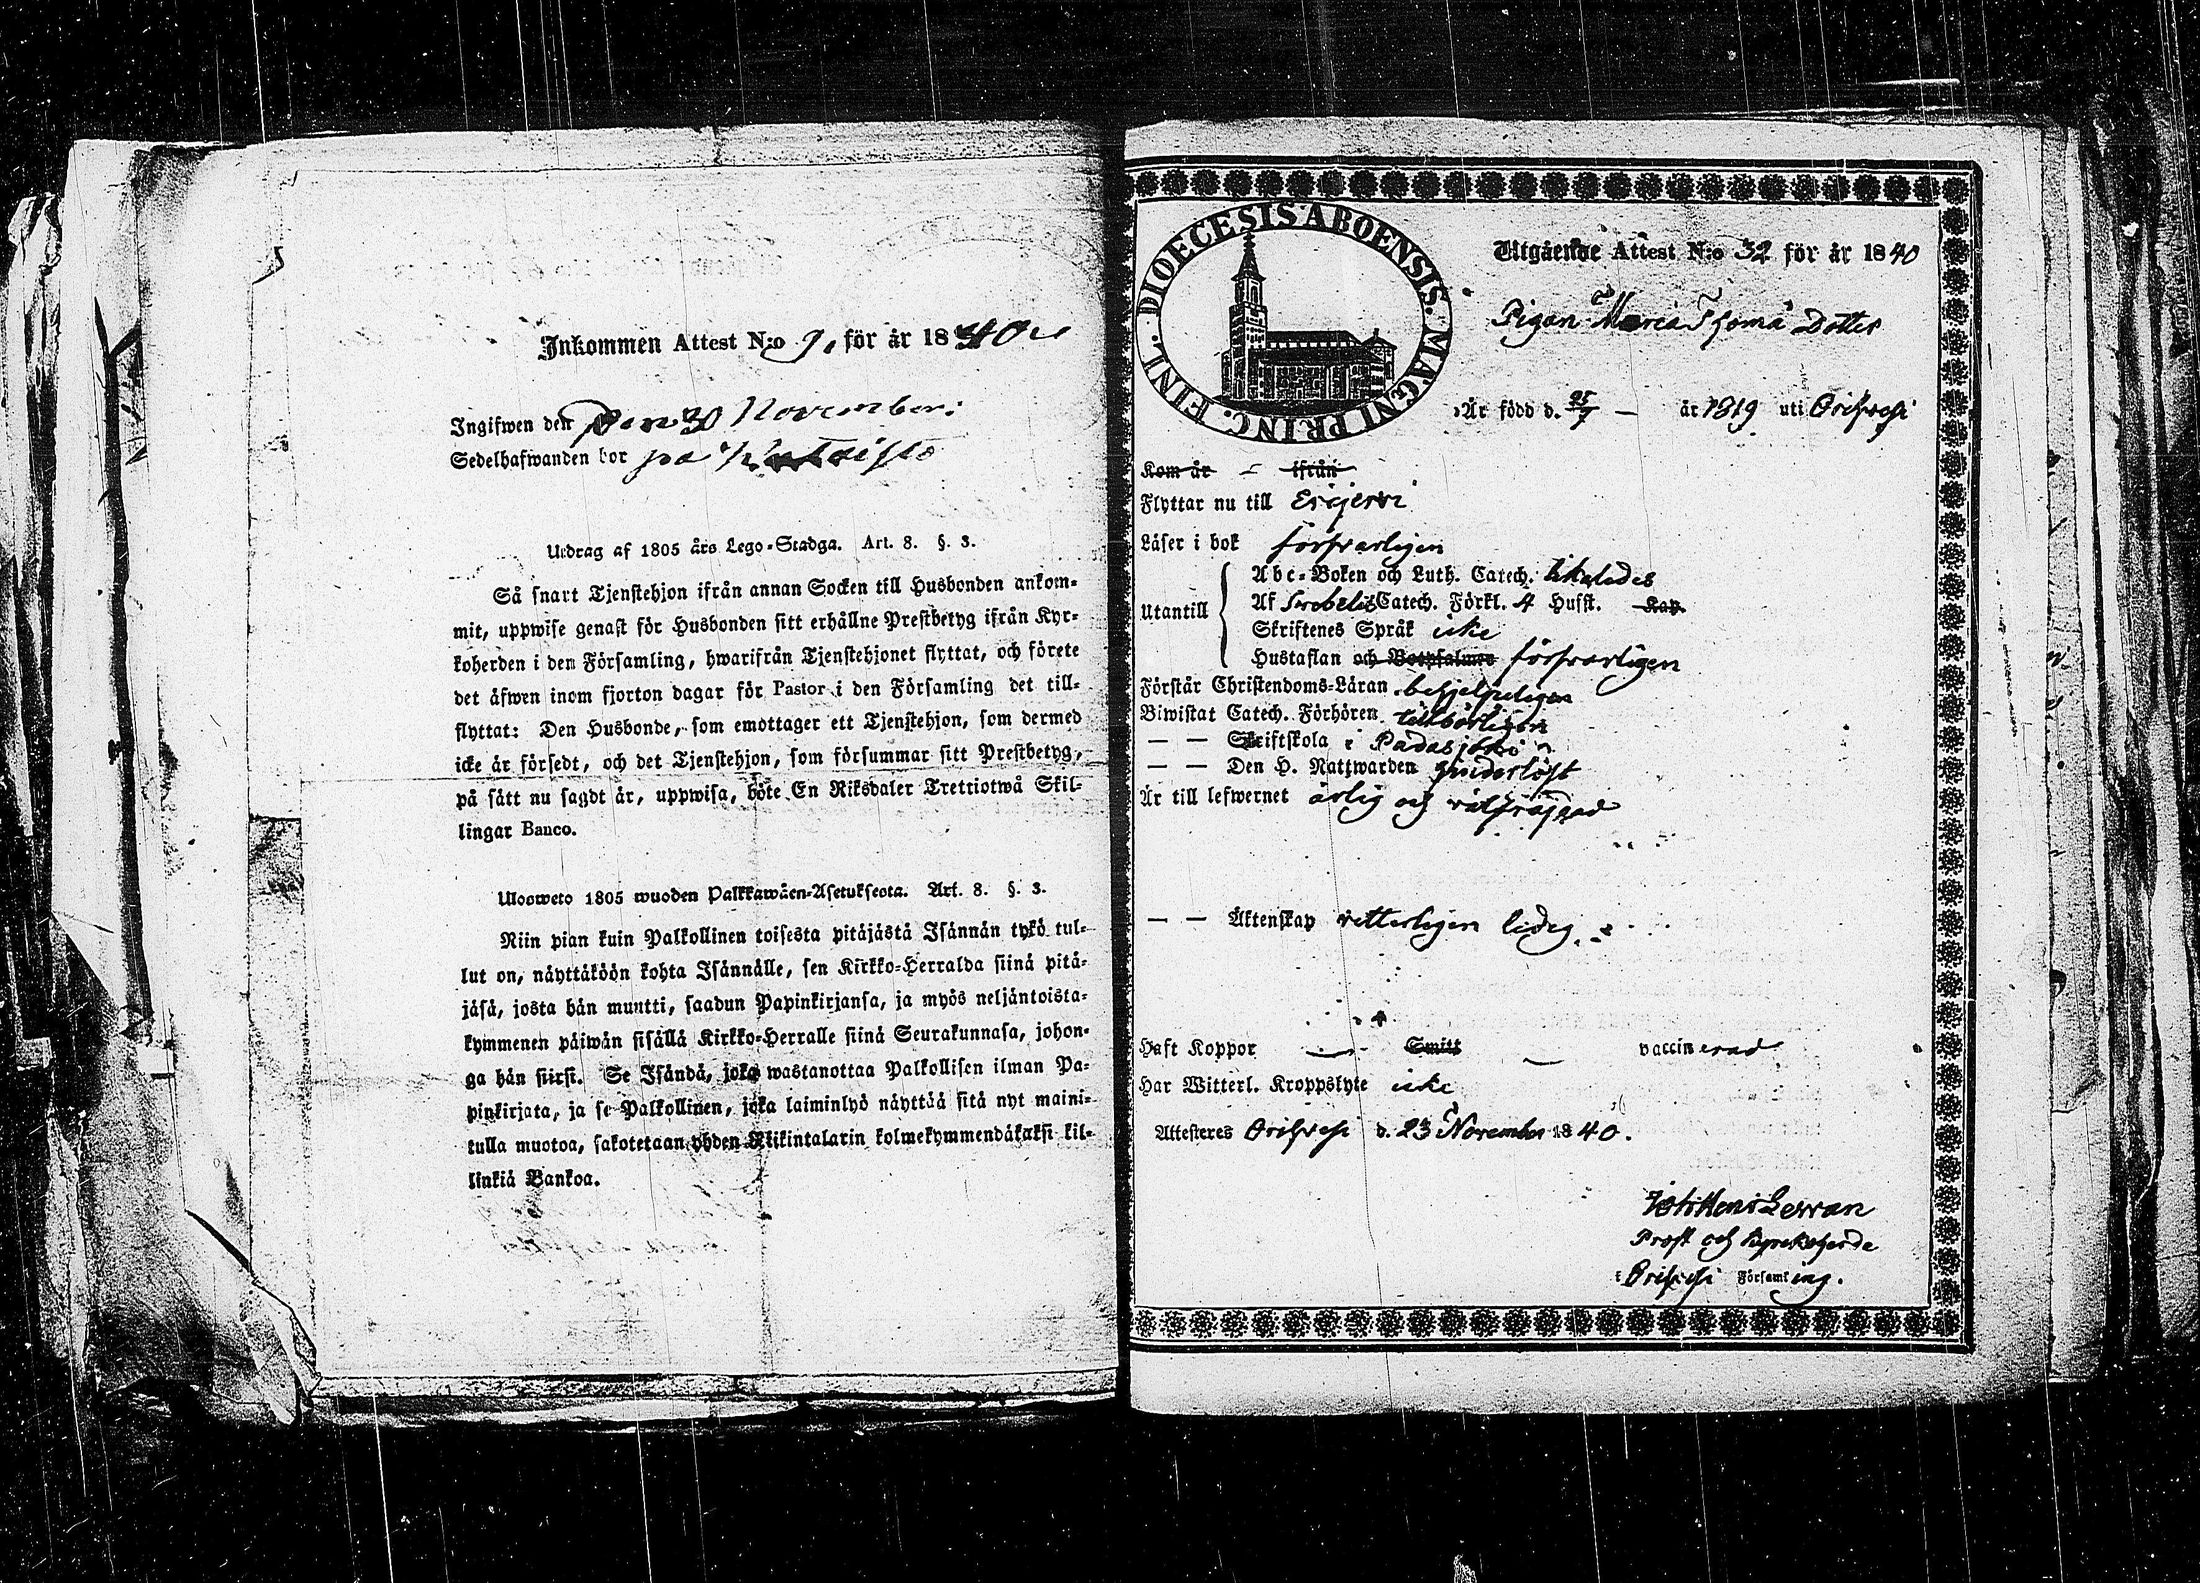 Inkommen Attest N:o 9. för år 1840
Ingifwen den Den 30 November
Sedelhafwanden bor på
Utdrag af 1805 års Lego-Stadga. Art. 8. §. 3.
Så snart Tjenstehjon ifrån annan Socken till Husbonden ankom-
mit, uppwise genast för Husbonden sitt erhållne Prestbetyg ifrån Kyr-
koherden i den Församling, hwarifrån Tjenstehjonet flyttat, och förete
det äfwen inom fjorton dagar för Pastor i den Församling det till-
flyttat: Den Husbonde, som emottager ett Tjenstehjon, som dermed
icke är försedt, och det Tjenstehjon, som försummar sitt Prestbetyg,
på sätt nu sagdt är, uppwisa, böte En Riksdaler Trettiotwå Skil-
lingar Banco.
Ulosweto 1805 wuoden Palkkawäen-Asetuksesta. Art. 8. §. 3.
Niin pian kuin Palkollinen toisesta pitäjästä Isännän tykö tul-
lut on, näyttäköön kohta Isännälle, sen Kirkko-Herralda siinä pitä-
jäsä, josta hän muutti, saadun Papinkirjansa, ja myös neljäntoista-
kymmenen päiwän sisällä Kirkko-Herralle siinä Seurakunnasa, johon-
ga hän siirsi. Se Isändä, joka wastanottaa Palkollisen ilman Pa-
pinkirjata, ja se Palkollinen, joka laiminlyö näyttää sitä nyt maini-
tulla muotoa, sakotetaan yhden Riikintalarin kolmekymmendäkaksi kil-
linkiä Bankoa.
DIOECESIS ABOENSIS. MAGNI PRINC. FINL.
Utgående Attest N:o 32 för år 1840
Pigan Maria Thomä Dotter
Är född d. 25/7 — år 1819 uti Orihvesi
Kom år — ifrån
Flyttar nu till Erijervi
Läser i bok försvarligen
Utantill
Abc-Boken och Luth. Catech. likaledes
Af Svebelii Catech. Förkl. 4 Husst. Kap.
Skriftenes Språk icke
Hustaflan och Botpsalmer försvarligen
Förstår Christendoms-Läran behjelpeligen
Biwistat Catech. Förhören tillbörligen
— — Skriftskola i Padasjoki
— — Den H. Nattwarden
Är till lefwernet ärlig och välfräjdad
— — Äktenskap vetterligen ledig
Haft Koppor — Smitt — vaccinerad
Har Witterl. Kroppslyte icke
Attesteres Orihvesi d. 23 November 1840.
Prost och Kyrkoherde
i Orihvesi Församling.